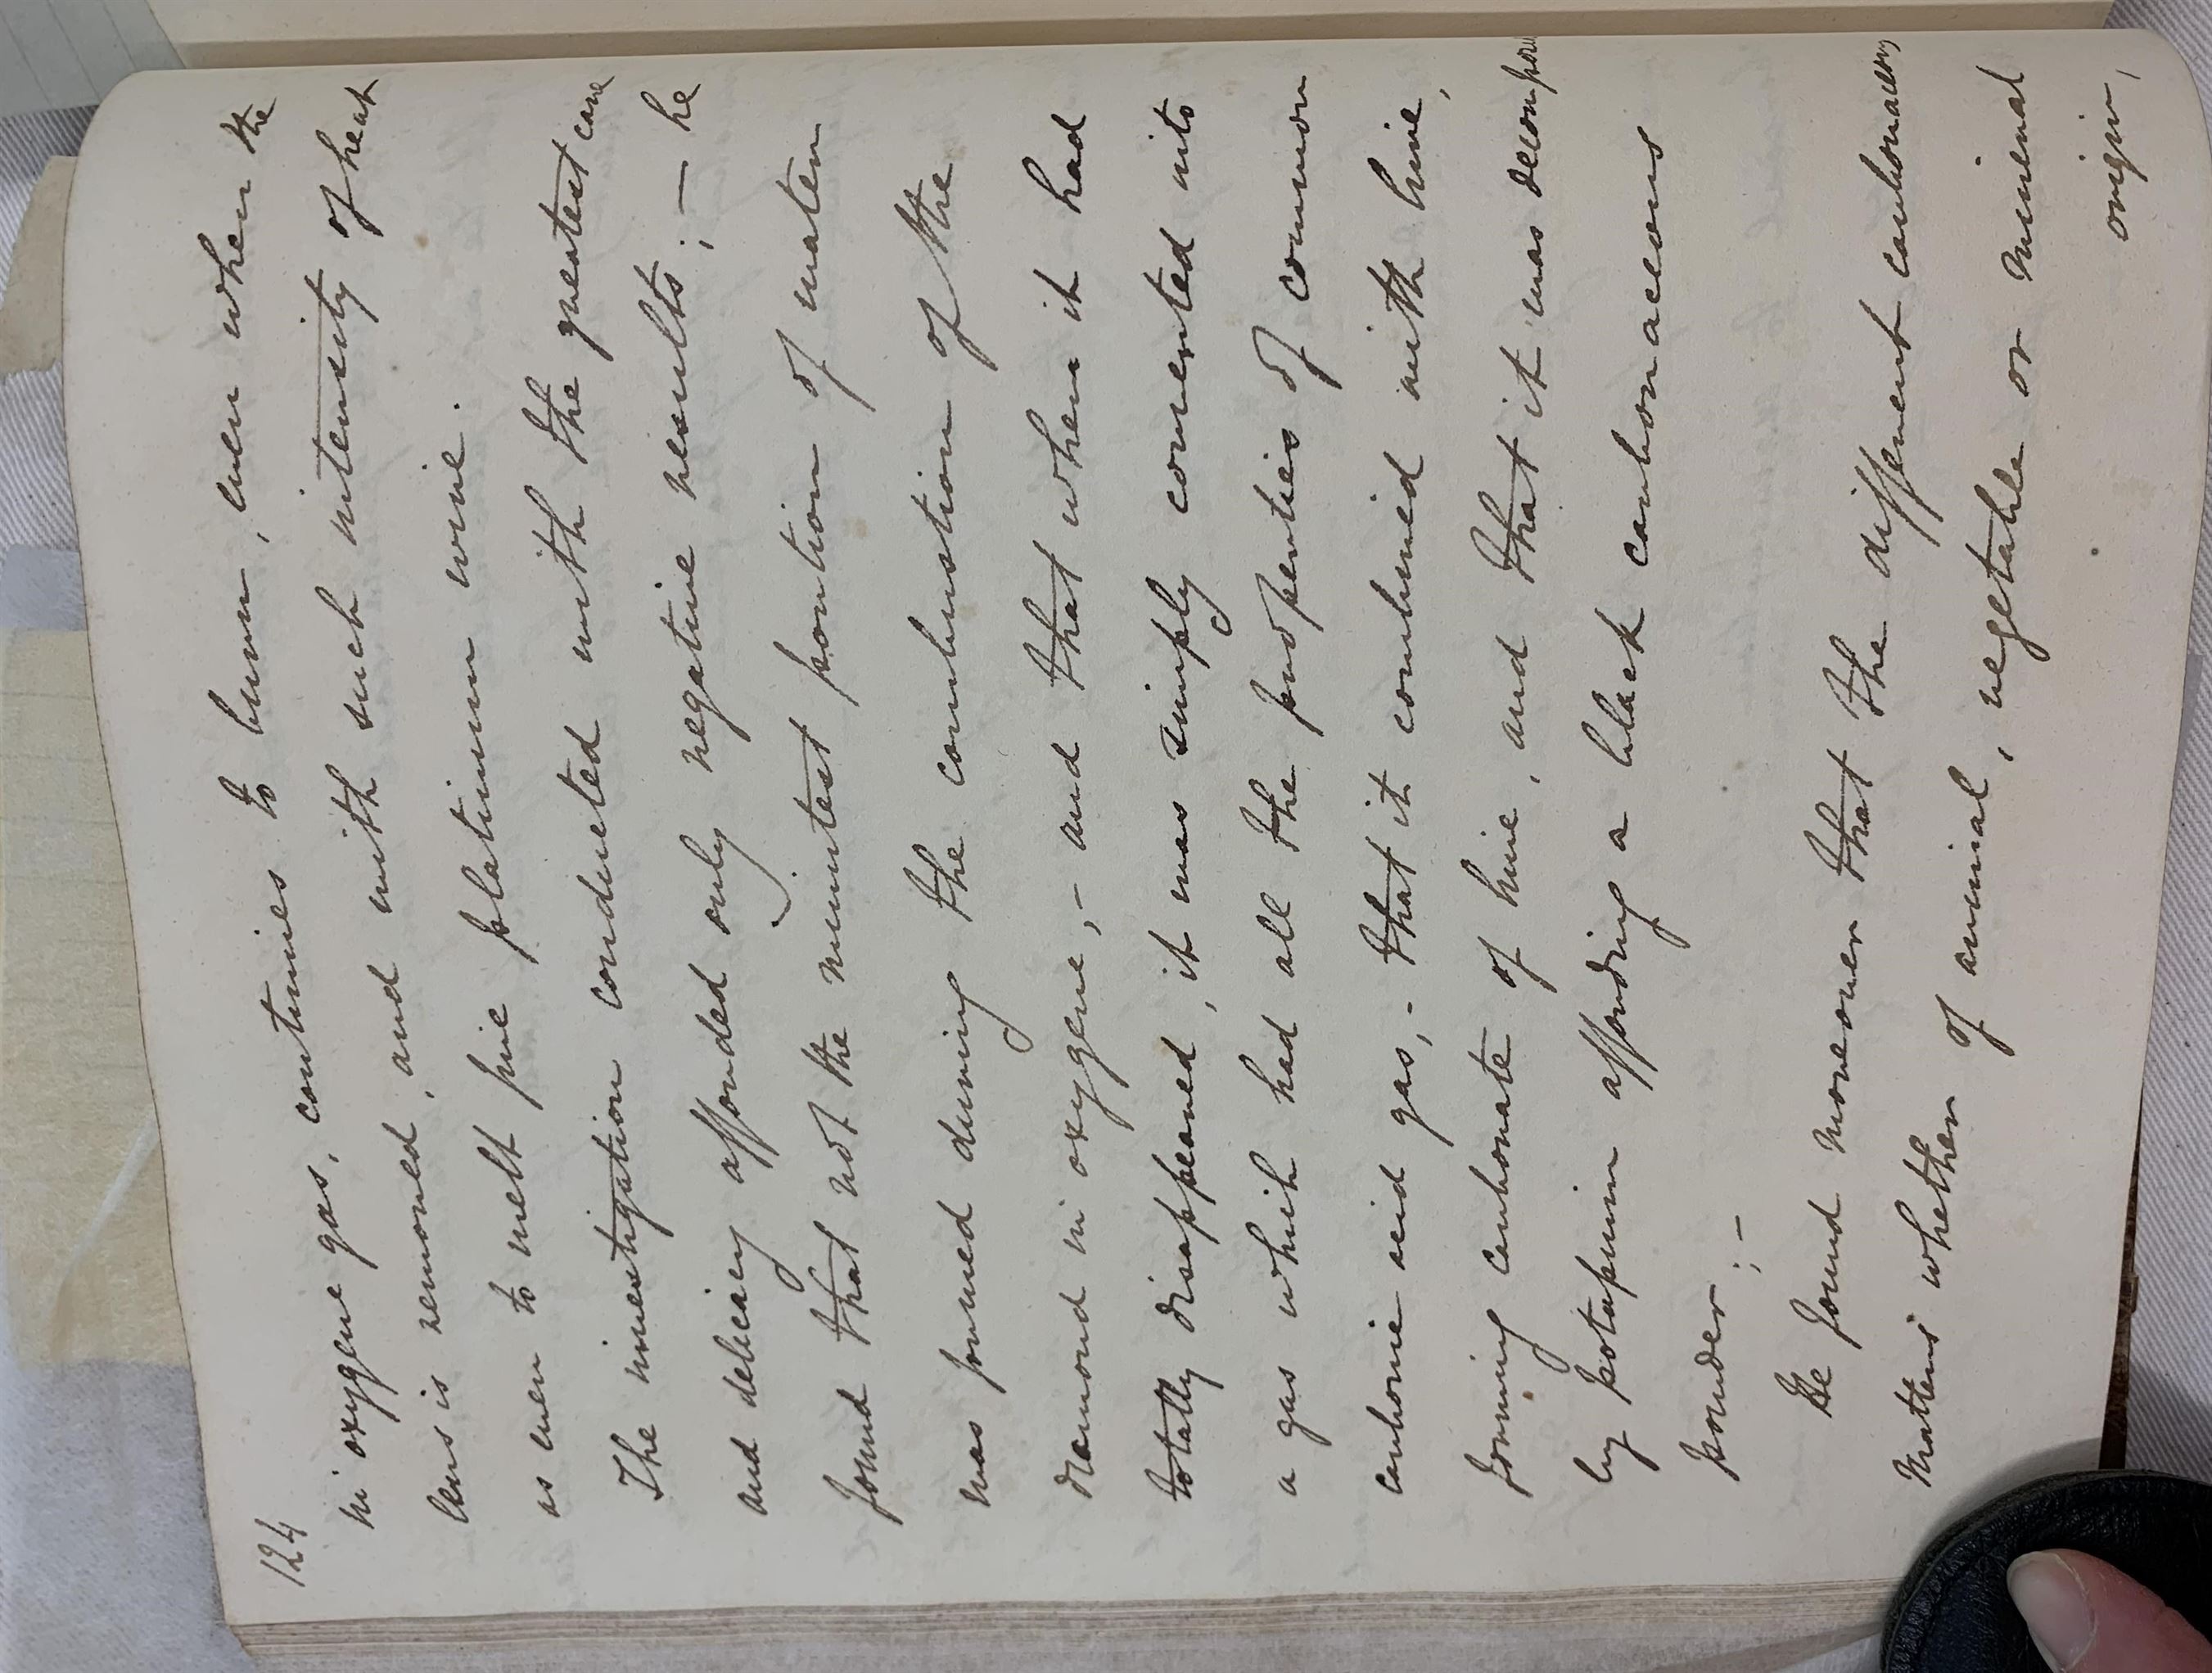 124
in oxygene gas, continues to burn, even when the
lens is removed, and with such intensity of heat
as even to melt fine platinum wire.
The investigation conducted with the greatest care
and delicacy afforded only negative results; — he
found that not the minutest portion of water
was formed during the combustion of the
diamond in oxygene, - and that when it had
totally disappeared, it was simply converted into
a gas which had all the properties of common
carbonic acid gas, - that it combined with lime,
forming carbonate of lime, and that it was decompos
by potassium affording a black carbonaceous
powder; -
He found moreover that the different carbonaceous
matters whether of animal, vegetable or mineral
origin,